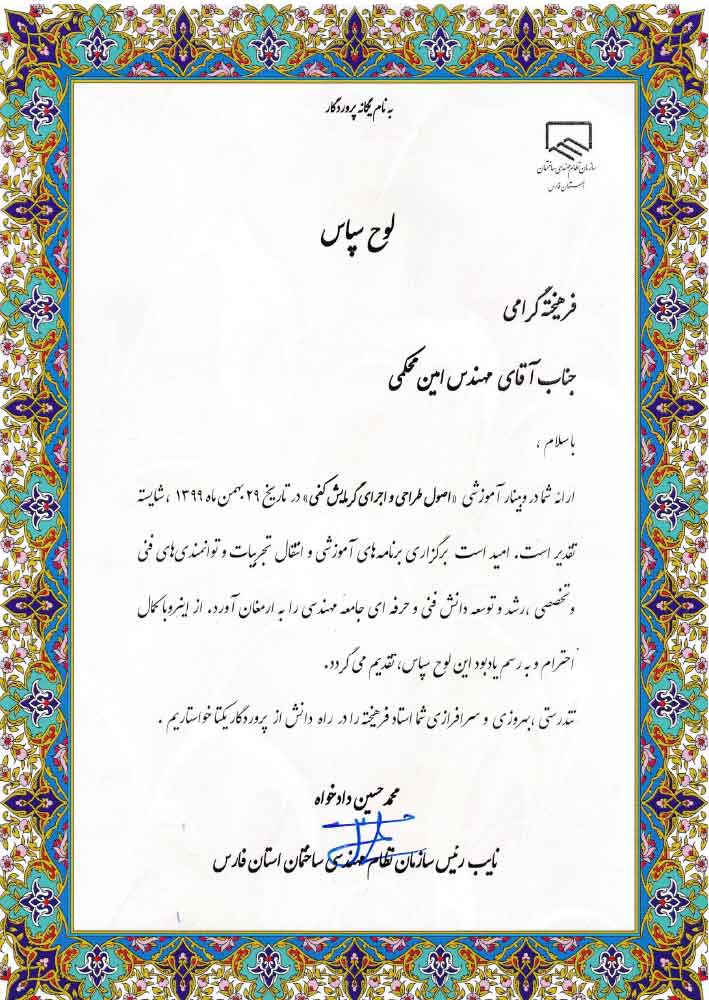 به نام یگانه پروردگار
سازمان نظام مهندسی ساختمان
استان فارس
لوح سپاس
فرهیخته گرامی
جناب آقای مهندس امین محکمی
باسلام ،
ارائه شما در وبینار آموزشی «اصول طراحی و اجرای گرمایش کفی» در تاریخ ۲۹ بهمن ماه ۱۳۹۹ ، شایسته
تقدیر است. امید است برگزاری برنامه های آموزشی و انتقال تجربیات و توانمندی های فنی
و تخصصی ، رشد و توسعه دانش فنی و حرفه ای جامعه مهندسی را به ارمغان آورد. از اینرو با کمال
احترام و به رسم یادبود این لوح سپاس، تقدیم می گردد.
تندرستی ، بهروزی و سرافرازی شما استاد فرهیخته را در راه دانش از پروردگار یکتا خواستاریم .
محمد حسین دادخواه
نایب رئیس سازمان نظام مهندسی ساختمان استان فارس